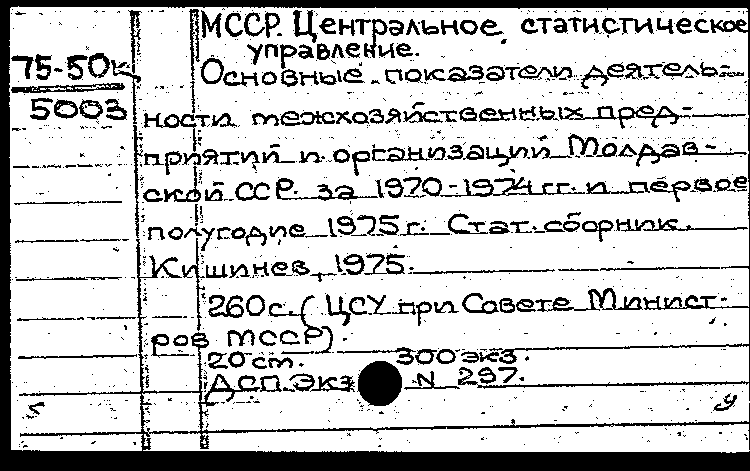 МССР. Центральное статистическое
управление.
75-50к
5003
Основные показатели деятель-
ности межхозяйственных пред-
приятий и организаций Молдав-
ской ССР за 1970-1974 гг. и первое
полугодие 1975 г. Стат. сборник.
Кишинев, 1975.
260 с. (ЦСУ при Совете Минист-
ров МССР).
20 ст. 300 экз.
ДСП. Экз N 297.
у